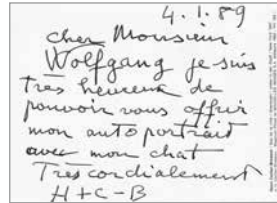 4.1.89
cher Monsieur
Wolfgang je suis
très heureux de
pouvoir vous offrir
mon autoportrait
avec mon chat
Très cordialement
H+C-B